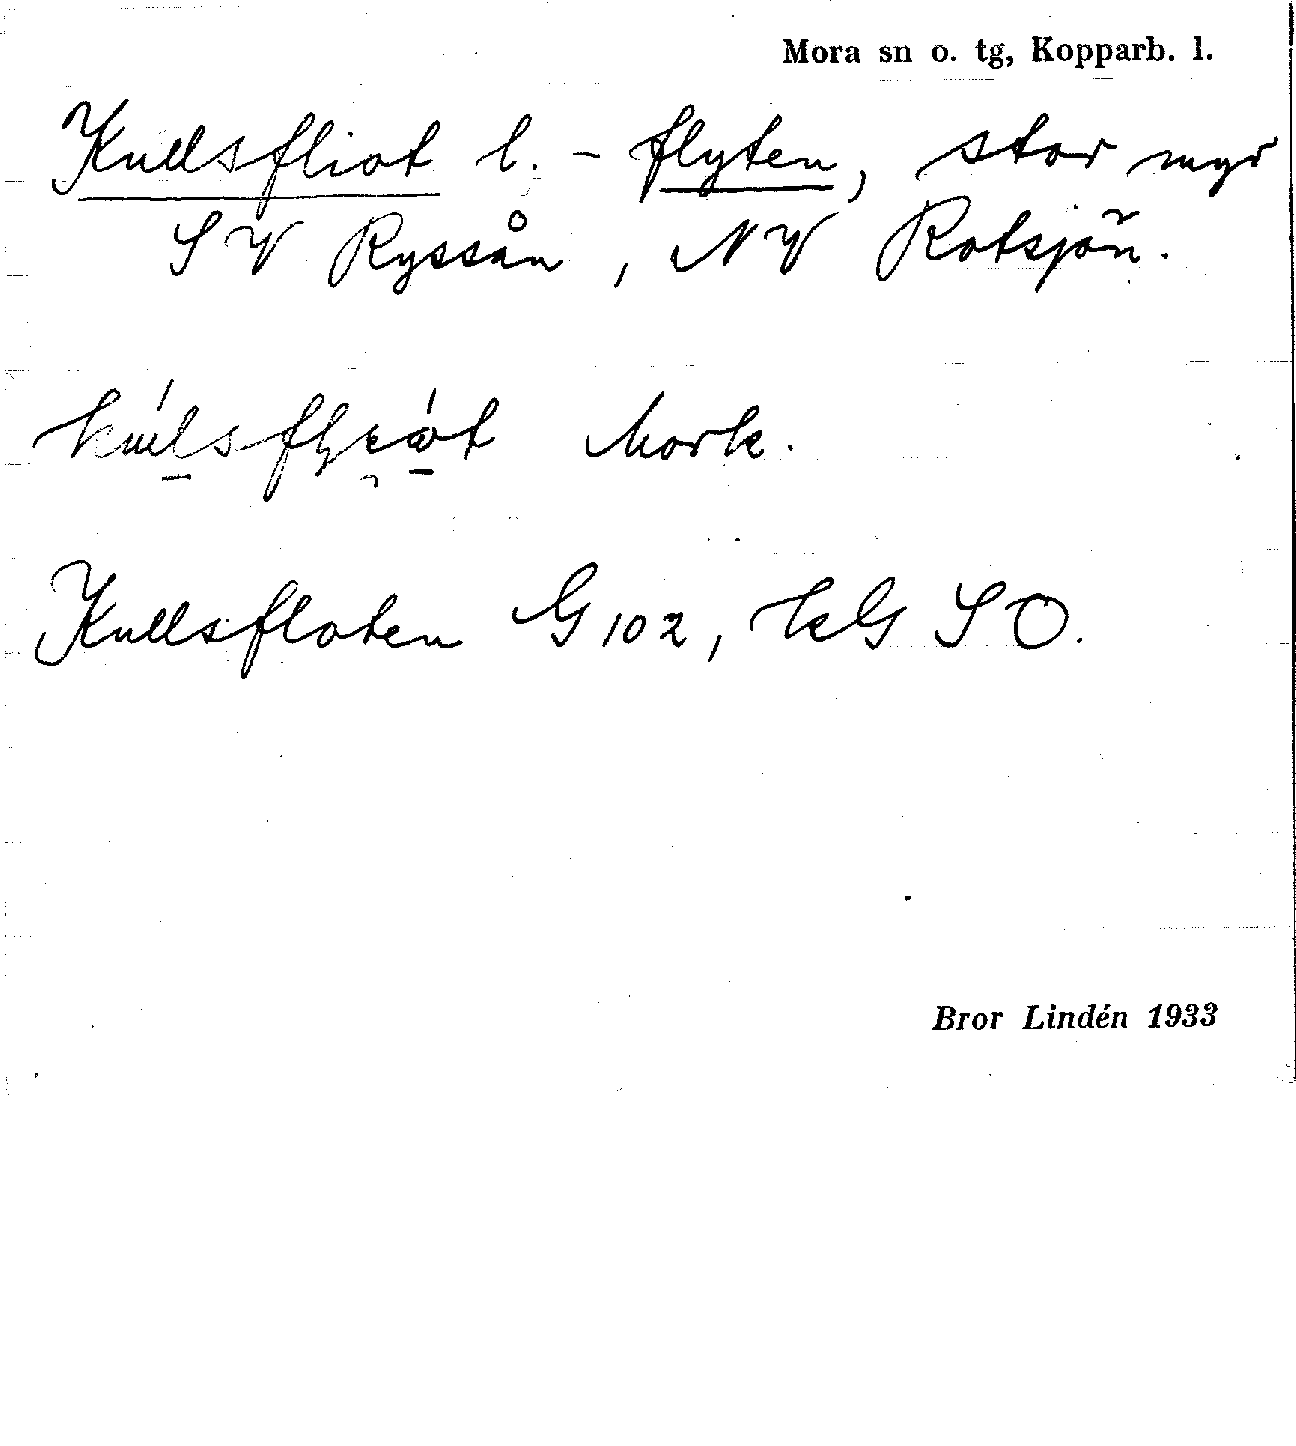 Mora sn o. tg, Kopparb. l.
Kullsfliot l. - flyten, stor myr
SV Ryssån, NV Rotsjön.
Mork.
Kullsfloten G 102, kG SO.
Bror Lindén 1933